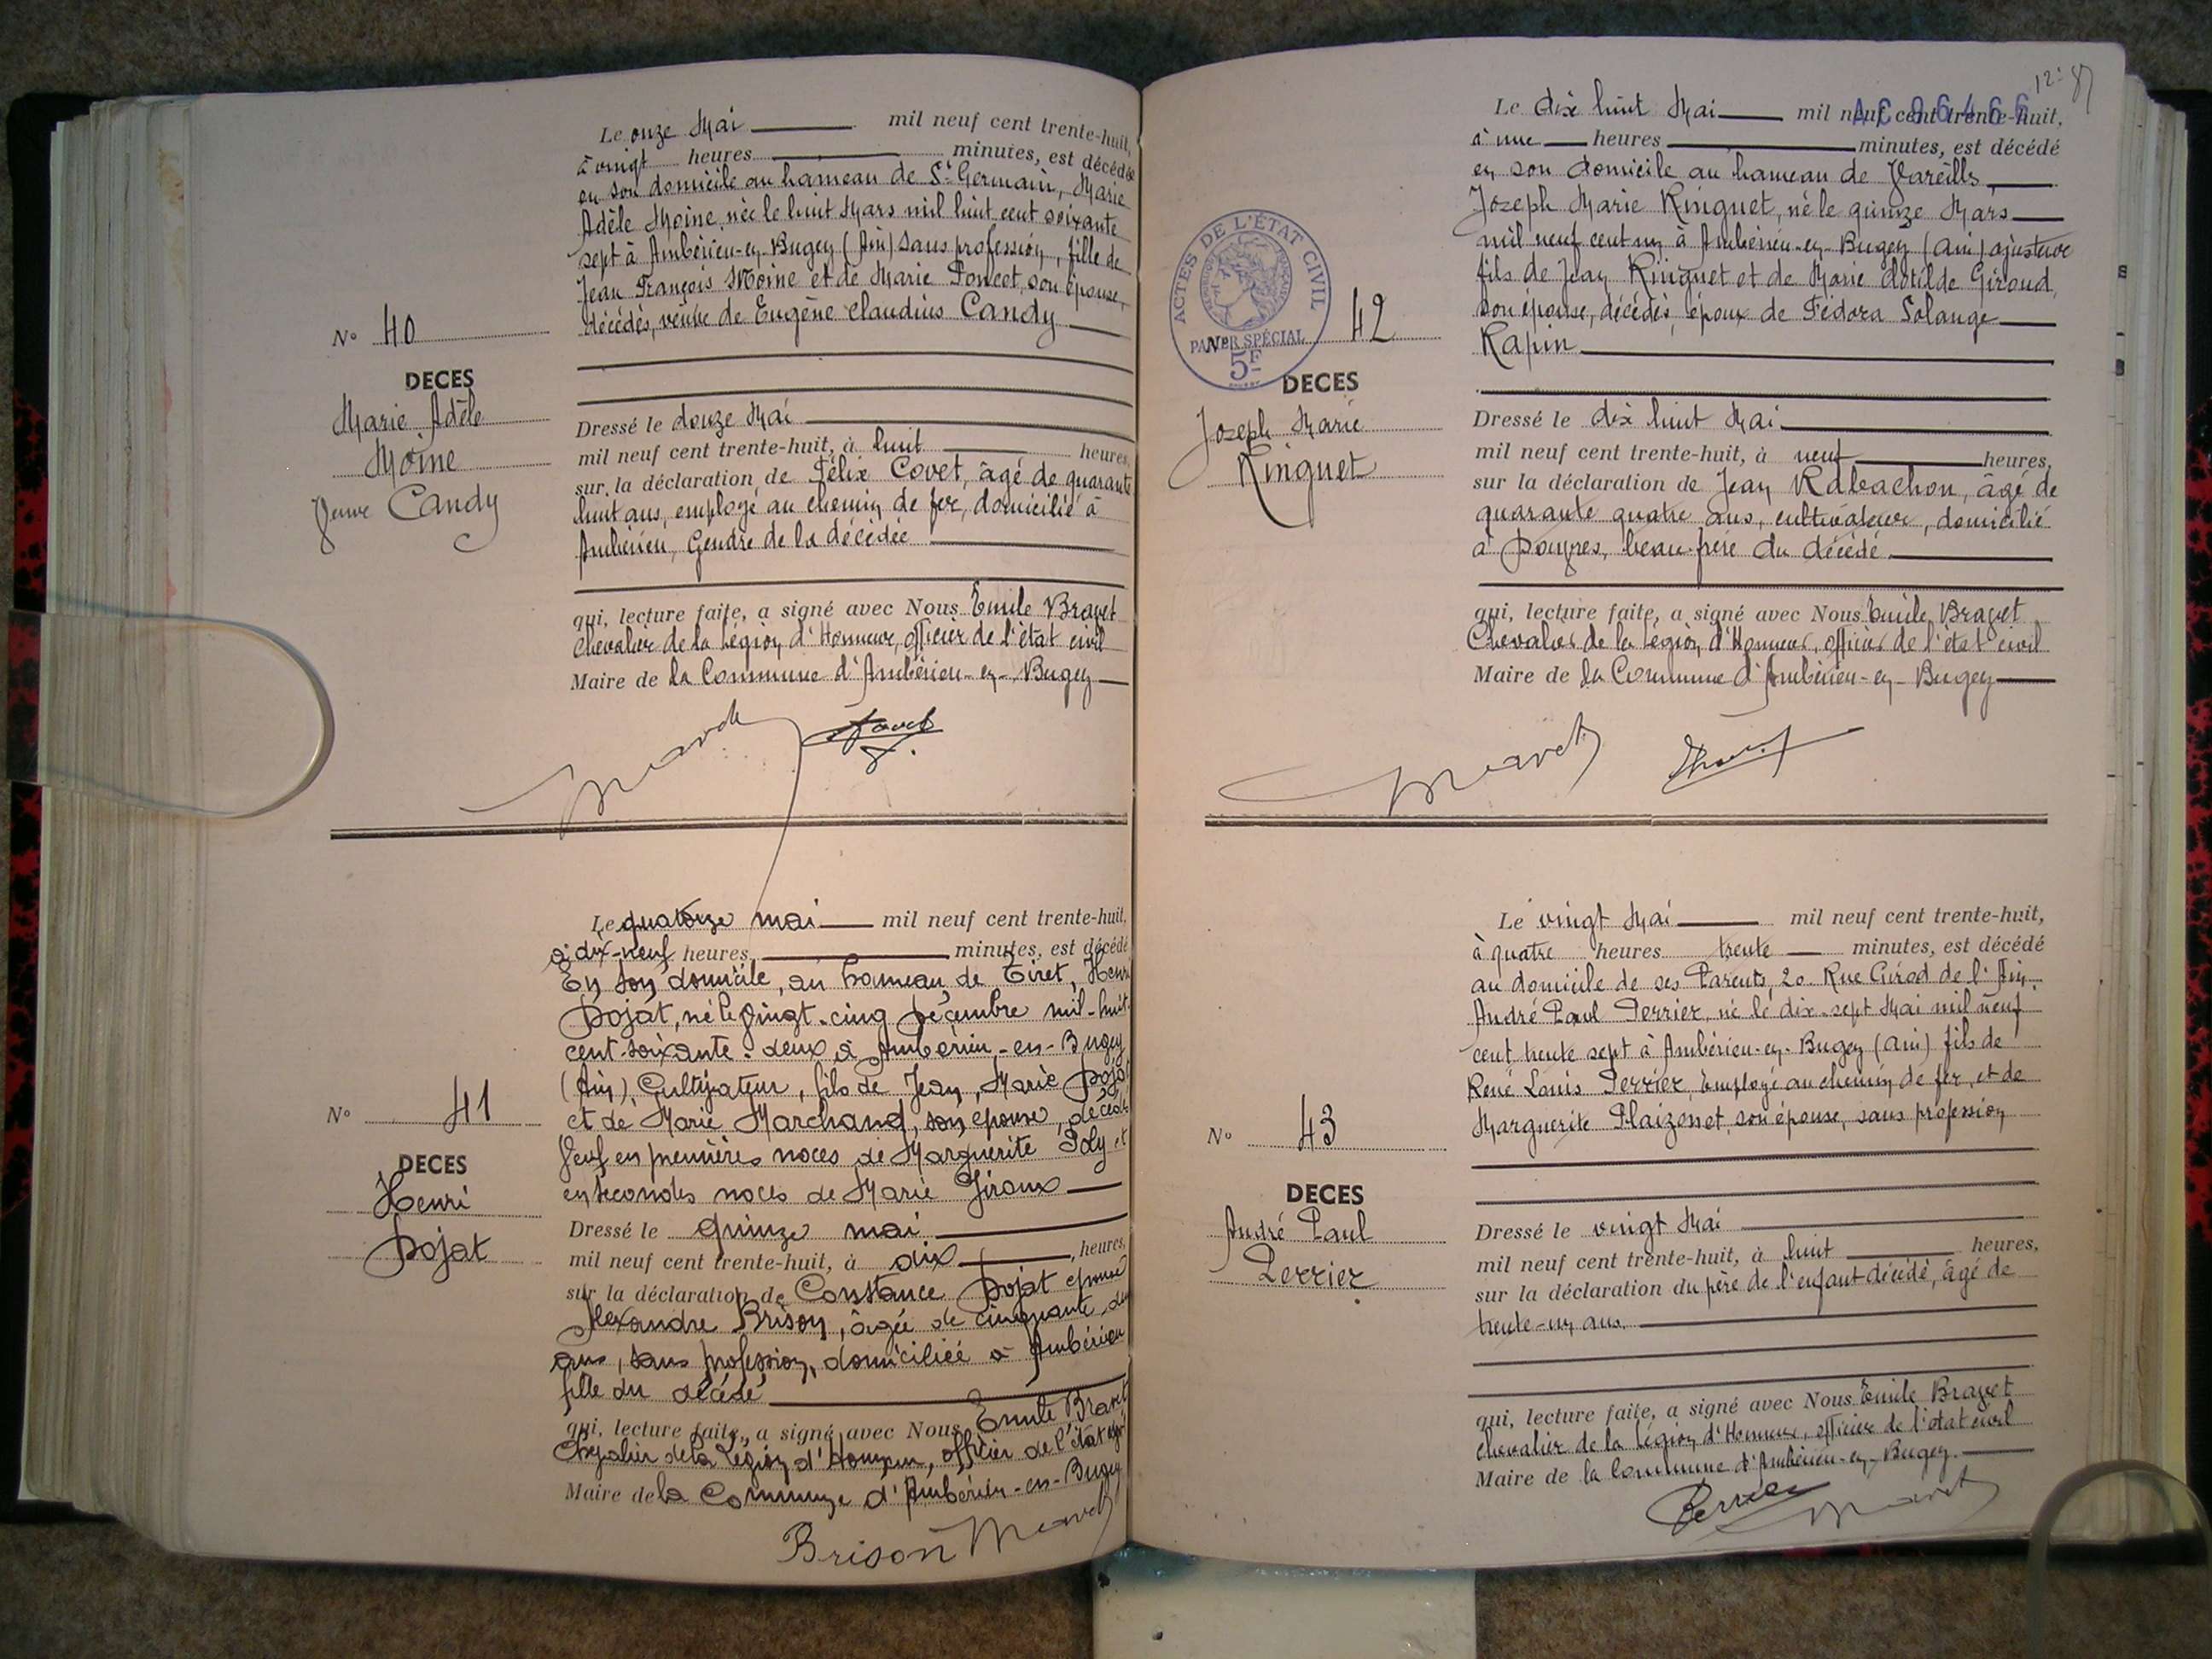 Le onze Mai mil neuf cent trente-huit,
à vingt heures minutes, est décédée
en son domicile au hameau de St Germain, Marie
Adèle Moine, née le huit Mars mil huit cent soixante
sept à Ambérieu-en-Bugey (Ain) sans profession, fille de
Jean François Moine et de Marie Poncet, son épouse,
décédés, veuve de Eugène Claudius Candy
N° 40
DECES
Marie Adèle
Moine
Veuve Candy
Dressé le douze Mai
mil neuf cent trente-huit, à huit heures,
sur la déclaration de Félix Covet, âgé de quarante
huit ans, employé au chemin de fer, domicilié à
Ambérieu, Gendre de la décédée
qui, lecture faite, a signé avec Nous Emile Bravet
Chevalier de la Légion d'Honneur, officier de l'état civil
Maire de la Commune d'Ambérieu-en-Bugey
Le quatorze mai mil neuf cent trente-huit,
à dix-neuf heures, minutes, est décédé
En son domicile, au hameau de Tiret, Henri
Dojat, né le vingt-cinq Décembre mil-huit-
cent-soixante-deux à Ambérieu-en-Bugey
(Ain) Cultivateur, fils de Jean, Marie Dojat
et de Marie Marchand, son épouse, décédés
Veuf en premières noces de Marguerite Poly et
en secondes noces de Marie Giroux
N° 41
DECES
Henri
Dojat
Dressé le quinze mai
mil neuf cent trente-huit, à dix heures,
sur la déclaration de Constance Dojat épouse
Alexandre Brison, âgée de cinquante
ans, sans profession, domiciliée à Ambérieu
fille du décédé
qui, lecture faite, a signé avec Nous Emile Bravet
Chevalier de la Légion d'Honneur, officier de l'état civil
Maire de la Commune d'Ambérieu-en-Bugey
Brison
12: 87
AC 86466
Le dix huit Mai mil neuf cent trente-huit,
à une heures minutes, est décédé
en son domicile au hameau de Vareilles,
Joseph Marie Ringuet, né le quinze Mars
mil neuf cent un à Ambérieu-en-Bugey (Ain) ajusteur
fils de Jean Ringuet et de Marie Clotilde Giroud,
son épouse, décédés, époux de Fédora Solange
Rapin
ACTES DE L'ÉTAT CIVIL
PAPIER SPÉCIAL
5F
N° 42
DECES
Joseph Marie
Ringuet
Dressé le dix huit Mai
mil neuf cent trente-huit, à neuf heures,
sur la déclaration de Jean Rabachon, âgé de
quarante quatre ans, cultivateur, domicilié
à Douvres, beau-frère du décédé
qui, lecture faite, a signé avec Nous Emile Bravet
Chevalier de la Légion d'Honneur, officier de l'état civil
Maire de la Commune d'Ambérieu-en-Bugey
Le vingt Mai mil neuf cent trente-huit,
à quatre heures trente minutes, est décédé
au domicile de ses Parents, 20 Rue Girod de l'Ain
André Paul Perrier, né le dix-sept Mai mil neuf
cent trente sept à Ambérieu-en-Bugey (Ain) fils de
René Louis Perrier, Employé au chemin de fer, et de
Marguerite Plaizonet, son épouse, sans profession
N° 43
DECES
André Paul
Perrier
Dressé le vingt Mai
mil neuf cent trente-huit, à huit heures,
sur la déclaration du père de l'enfant décédé, âgé de
trente-un ans.
qui, lecture faite, a signé avec Nous Emile Bravet
Chevalier de la Légion d'Honneur, officier de l'état civil
Maire de la Commune d'Ambérieu-en-Bugey.
Perrier